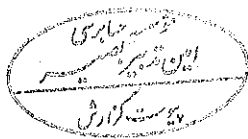 مؤسسه حسابرسی
امین تدبیر بصیر
پیوست گزارش